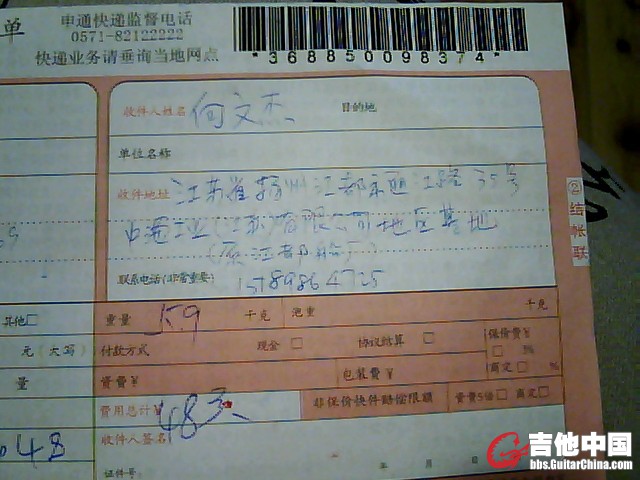 单
申通快递监督电话
0571-82122222
快递业务请垂询当地网点
*368850098374*
收件人姓名 何文杰 目的地
单位名称
收件地址 江苏省扬州江都市 江路35号
中海工业(江苏)有限公司 地区基地
(原江都船厂)
联系电话(非常重要)
② 结帐联
其他□ 重量 5.9 千克 泡重 千克
元(大写) 付款方式 现金□ 协议结算□ 保价费¥
□ %
量 资费¥ 包装费¥ 商定□ %
费用总计¥ 48 非保价快件赔偿限额 资费5倍□ 商定□
048 收件人签名
年 月 日
证件号
吉他中国
bbs.GuitarChina.com